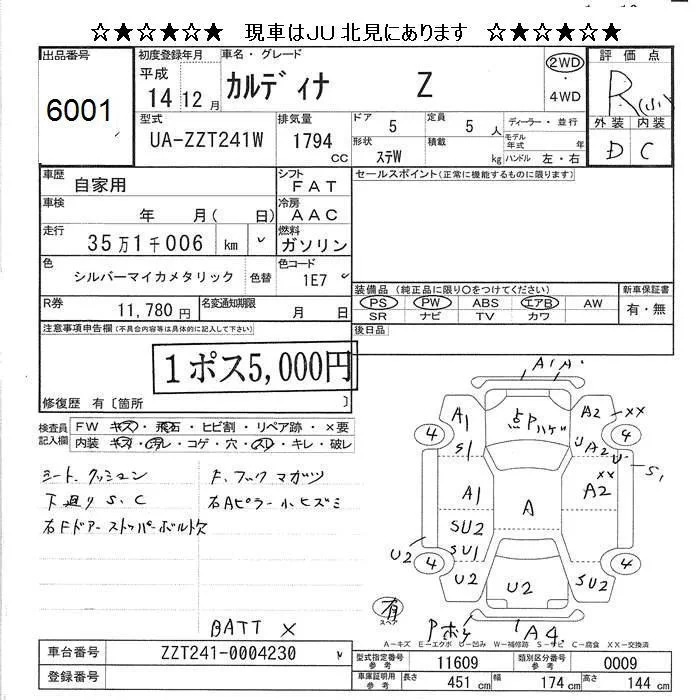 ☆★☆★☆★ 現車はJU 北見にあります ☆★☆★☆★
出品番号
6001
初度登録年月
平成
14 12 月
車名・グレード
カルディナ Z
2WD
・
4WD
評価点
R(小)
外装 内装
D C
型式
UA-ZZT241W
排気量
1794 cc
ドア 5
定員 5 人
形状 ステW
積載 kg
ディーラー・並行
モデル年式 年
ハンドル 左・右
車歴
自家用
シフト
F A T
セールスポイント(正常に機能するものに限ります)
車検
年 月( 日)
冷房
A A C
走行
35万1千006 km
燃料
ガソリン
色
シルバーマイカメタリック 色替
色コード
1E7
装備品(純正品に限り○をつけてください)
PS PW ABS エアB AW
SR ナビ TV カワ
新車保証書
有・無
R券
11,780 円
名変通知期限
月 日
後日品
注意事項申告欄(不具合内容等は具体的に記入して下さい)
1ポス5,000円
修復歴 有〔箇所 〕
検査員記入欄
FW キズ・飛石・ヒビ割・リペア跡・×要
内装 キズ・汚レ・コゲ・穴・スレ・キレ・破レ
シート、クッション
下廻り S、C
右Fドアーストッパーボルト欠
F、フック マガツ
右Aピラー小ヒズミ
BATT ×
A1 A1
A1 点Pハゲ A2 ××
4 4
S1 U A2 U
S1
A1 A A2 ××
SU2
SU1
U2
4 4
U2 U2 SU2
有
スペア
Pボケ 1A4
A-キズ E-エクボ U-凹み W-補修跡 S-サビ C-腐食 XX-交換済
車台番号
ZZT241-0004230
登録番号
型式指定番号 参考
11609
類別区分番号 参考
0009
車庫証明用 参考
長さ 451 cm
幅 174 cm
高さ 144 cm